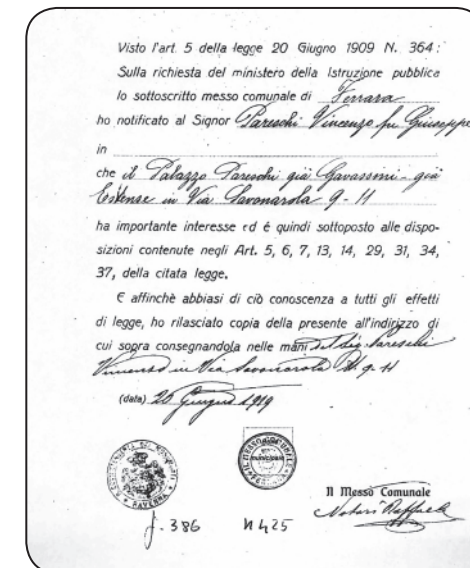 Visto l'art. 5 della legge 20 Giugno 1909 N. 364:
Sulla richiesta del ministero della Istruzione pubblica
Io sottoscritto messo comunale di Ferrara
ho notificato al Signor Pareschi Vincenzo fu Giuseppe
in
che il Palazzo Pareschi già Gavassini - già
Estense in Via Savonarola 9 - 11
ha importante interesse ed é quindi sottoposto alle dispo-
sizioni contenute negli Art. 5, 6, 7, 13, 14, 29, 31, 34,
37, della citata legge.
E affinchè abbiasi di ciò conoscenza a tutti gli effetti
di legge, ho rilasciato copia della presente all'indirizzo di
cui sopra consegnandola nelle mani del sig. Pareschi
Vincenzo in Via Savonarola N. 9-11
(data) 20 Giugno 1919
RAVENNA
Il Messo Comunale
Notari Raffaele
f. 386 N 425